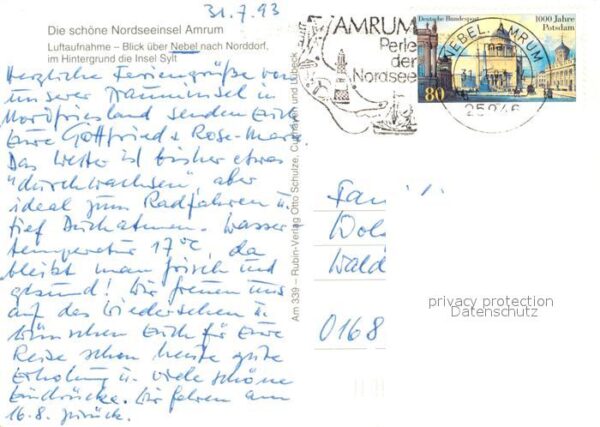 31.7.93
Die schöne Nordseeinsel Amrum
Luftaufnahme – Blick über Nebel nach Norddorf,
im Hintergrund die Insel Sylt
Herzliche Feriengrüße von
unserer Trauminsel in
Nordfriesland senden Euch
Eure Gottfried + Rose-Marie
Das Wetter ist bisher etwas
"durchwachsen", aber
ideal zum Radfahren u.
tief Durchatmen. Wasser
temperatur 17°C, da
bleibt man frisch und
gesund! Wir freuen uns
auf das Wiedersehen u.
wünschen Euch für Eure
Reise schon heute gute
Erholung u. viele schöne
Eindrücke. Wir fahren am
16.8. zurück.
Am 339 – Rubin-Verlag Otto Schulze, Cuxhaven und Lübeck
AMRUM
Perle
der
Nordsee
Deutsche Bundespost
1000 Jahre
Potsdam
80
NEBEL, AMRUM
25946
Fam
Wald
0168
privacy protection
Datenschutz